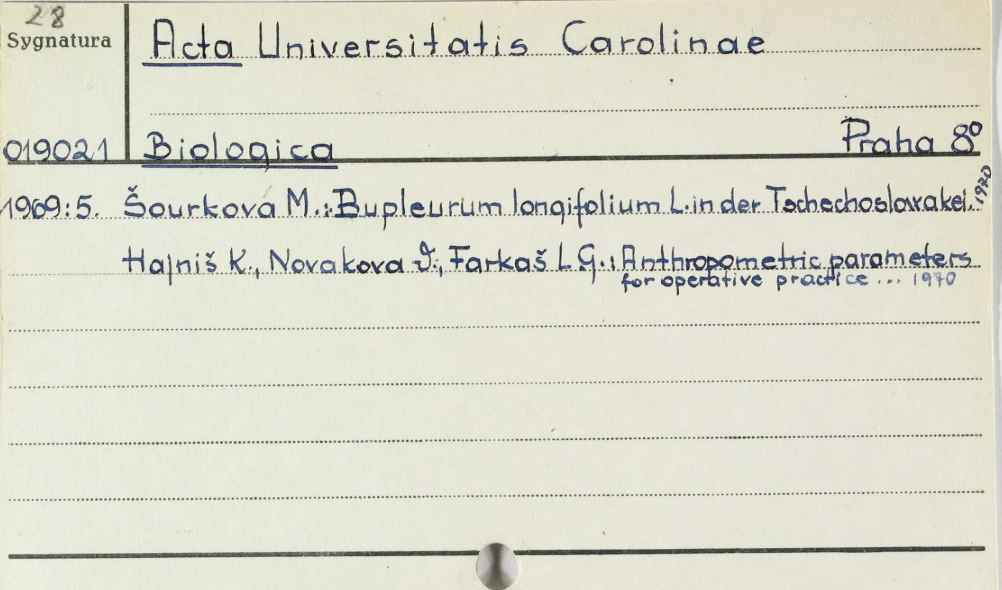 28
Sygnatura
Acta Universitatis Carolinae
019021
Biologica
Praha 8°
1969:5. Šourková M.: Bupleurum longifolium L. in der Tschechoslovakei. 1970
Hajniš K., Novakova J., Farkaš L.G.: Anthropometric parameters
for operative practice ... 1970